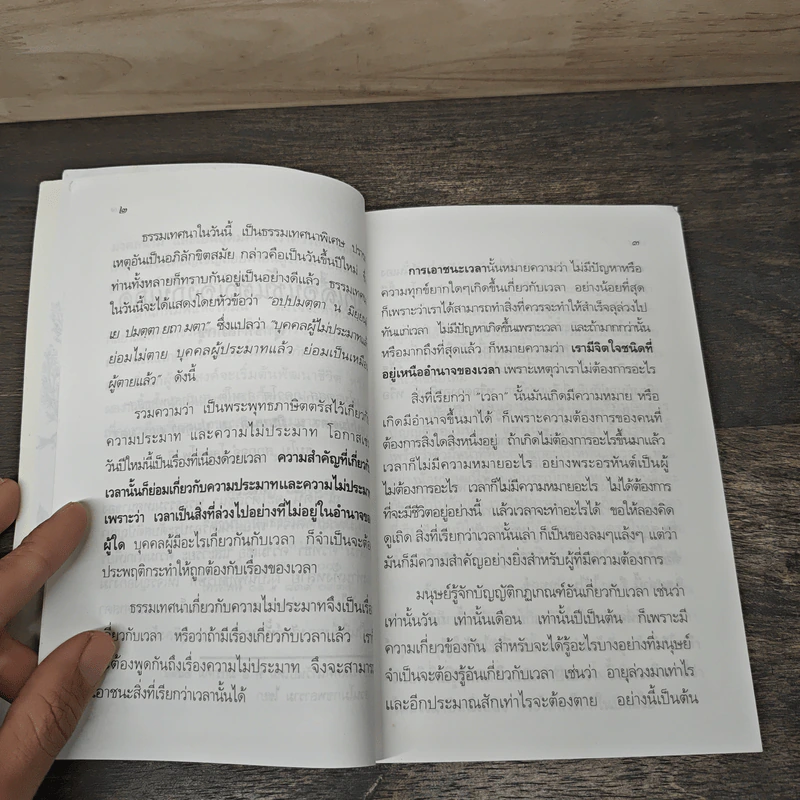 ๒
ธรรมเทศนาในวันนี้ เป็นธรรมเทศนาพิเศษ
เหตุอันเป็นอภิลักขิตสมัย กล่าวคือเป็นวันขึ้นปีใหม่
ท่านทั้งหลายก็ทราบกันอยู่เป็นอย่างดีแล้ว ธรรมเทศน
ในวันนี้จะได้แสดงโดยหัวข้อว่า "อปฺปมตฺตา น มิยฺย
เย ปมตฺตา ยถา มตา" ซึ่งแปลว่า "บุคคลผู้ไม่ประมาท
ย่อมไม่ตาย บุคคลผู้ประมาทแล้ว ย่อมเป็นเหมือ
ผู้ตายแล้ว" ดังนี้
รวมความว่า เป็นพระพุทธภาษิตตรัสไว้เกี่ยวกั
ความประมาท และความไม่ประมาท โอกาสเช
วันปีใหม่นี้เป็นเรื่องที่เนื่องด้วยเวลา ความสำคัญที่เกี่ยวกั
เวลานั้นก็ย่อมเกี่ยวกับความประมาทและความไม่ประมา
เพราะว่า เวลาเป็นสิ่งที่ล่วงไปอย่างที่ไม่อยู่ในอำนาจขอ
ผู้ใด บุคคลผู้มีอะไรเกี่ยวกันกับเวลา ก็จำเป็นจะต้อ
ประพฤติกระทำให้ถูกต้องกับเรื่องของเวลา
ธรรมเทศนาเกี่ยวกับความไม่ประมาทจึงเป็นเรื่อ
เกี่ยวกับเวลา หรือว่าถ้ามีเรื่องเกี่ยวกับเวลาแล้ว เรา
ต้องพูดกันถึงเรื่องความไม่ประมาท จึงจะสามาร
เอาชนะสิ่งที่เรียกว่าเวลานั้นได้
๓
การเอาชนะเวลานั้นหมายความว่า ไม่มีปัญหาหรือ
ความทุกข์ยากใดๆเกิดขึ้นเกี่ยวกับเวลา อย่างน้อยที่สุด
ก็เพราะว่าเราได้สามารถทำสิ่งที่ควรจะทำให้สำเร็จลุล่วงไป
ทันแก่เวลา ไม่มีปัญหาเกิดขึ้นเพราะเวลา และถ้ามากกว่านั้น
หรือมากถึงที่สุดแล้ว ก็หมายความว่า เรามีจิตใจชนิดที่
อยู่เหนืออำนาจของเวลา เพราะเหตุว่าเราไม่ต้องการอะไร
สิ่งที่เรียกว่า "เวลา" นั้นมันเกิดมีความหมาย หรือ
เกิดมีอำนาจขึ้นมาได้ ก็เพราะความต้องการของคนที่
ต้องการสิ่งใดสิ่งหนึ่งอยู่ ถ้าเกิดไม่ต้องการอะไรขึ้นมาแล้ว
เวลาก็ไม่มีความหมายอะไร อย่างพระอรหันต์เป็นผู้
ไม่ต้องการอะไร เวลาก็ไม่มีความหมายอะไร ไม่ได้ต้องการ
ที่จะมีชีวิตอยู่อย่างนี้ แล้วเวลาจะทำอะไรได้ ขอให้ลองคิด
ดูเถิด สิ่งที่เรียกว่าเวลานั้นเล่า ก็เป็นของลมๆแล้งๆ แต่ว่า
มันก็มีความสำคัญอย่างยิ่งสำหรับผู้ที่มีความต้องการ
มนุษย์รู้จักบัญญัติกฎเกณฑ์อันเกี่ยวกับเวลา เช่นว่า
เท่านั้นวัน เท่านั้นเดือน เท่านั้นปีเป็นต้น ก็เพราะมี
ความเกี่ยวข้องกัน สำหรับจะได้รู้อะไรบางอย่างที่มนุษย์
จำเป็นจะต้องรู้อันเกี่ยวกับเวลา เช่นว่า อายุล่วงมาเท่าไร
และอีกประมาณสักเท่าไรจะต้องตาย อย่างนี้เป็นต้น